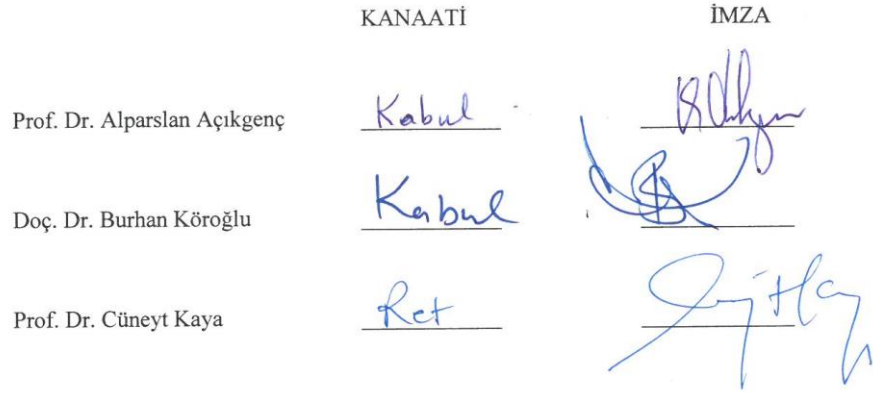 KANAATİ İMZA
Prof. Dr. Alparslan Açıkgenç Kabul
Doç. Dr. Burhan Köroğlu Kabul
Prof. Dr. Cüneyt Kaya Ret